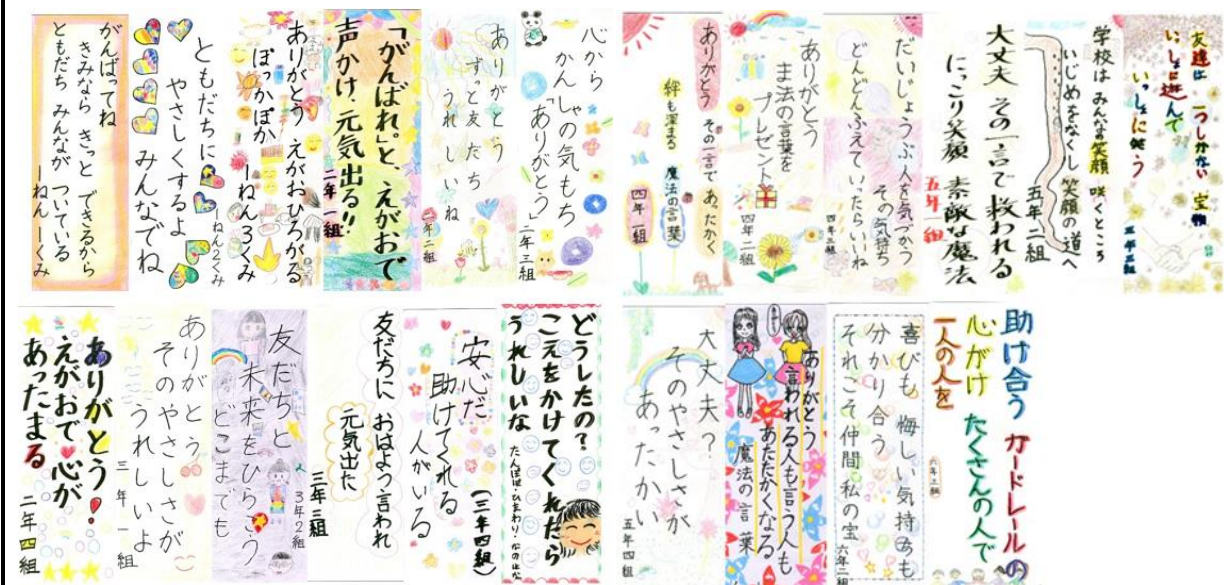 がんばってね
きみなら きっと できるから
ともだち みんなが ついている
一ねん一くみ
ともだちに
やさしくするよ
みんなでね
一ねん2くみ
ありがとう えがおひろがる
ぽっかぽか
一ねん3くみ
「がんばれ。」と、えがおで
声かけ、元気出る!!
二年 一組
ありがとう
ずっと友だち
うれしいね
二年二組
心から
かんしゃの気もち
「ありがとう」
二年三組
ありがとう その一言で あったかく
絆も深まる 魔法の言葉
四年 一組
ありがとう
まほうの言葉を
プレゼント
四年 二組
だいじょうぶ 人を気づかう
その気持ち
どんどんふえていったらいいね
四年三組
大丈夫 その一言で 救われる
にっこり笑顔 素敵な魔法
五年一組
学校は みんなの笑顔 咲くところ
いじめをなくし 笑顔の道へ
五年二組
友達は 一つしかない 宝物
いっしょに遊んで
いっしょに笑う
五年三組
ありがとう!
えがおで心が
あったまる
二年四組
ありがとう
そのやさしさが
うれしいよ
三年一組
友だちと
未来をひらこう
どこまでも
3年2組
友だちに おはよう言われ
元気出た
三年三組
安心だ
助けてくれる
人がいる
(三年四組)
どうしたの?
こえをかけてくれたら
うれしいな
大丈夫?
そのやさしさが
あったかい
五年四組
ありがとう
言われる人も言う人も
あたたかくなる
魔法の言葉
喜びも 悔しい気持ちも
分かり合う
それこそ仲間 私の宝
六年二組
助け合う ガードレールの
心がけ たくさんの人で
一人の人を
六年三組